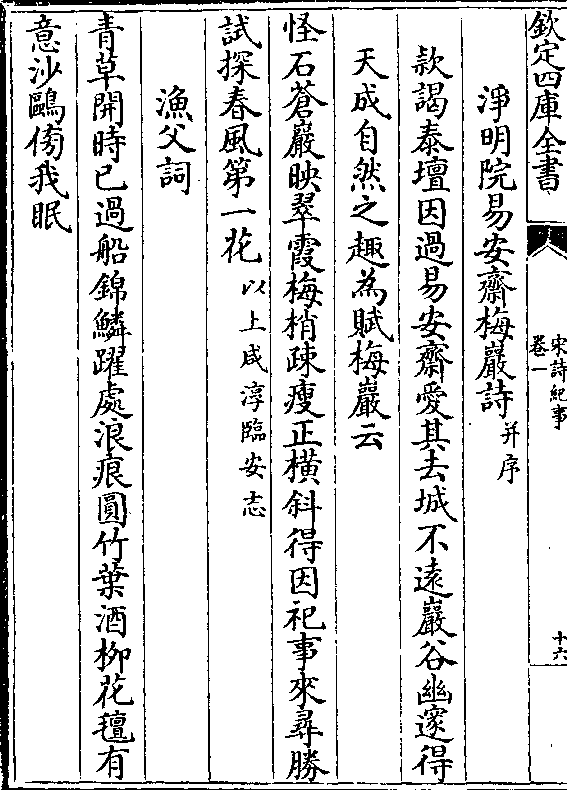 欽定四庫全書
宋詩紀事
卷一
十六
淨明院易安齋梅巖詩并序
款謁泰壇因過易安齋愛其去城不遠巖谷幽邃得
天成自然之趣為賦梅巖云
怪石蒼巖映翠霞梅梢疎瘦正橫斜得因祀事來尋勝
試探春風第一花以上咸淳臨安志
漁父詞
青草開時已過船錦鱗躍處浪痕圓竹葉酒柳花氊有
意沙鷗傍我眠